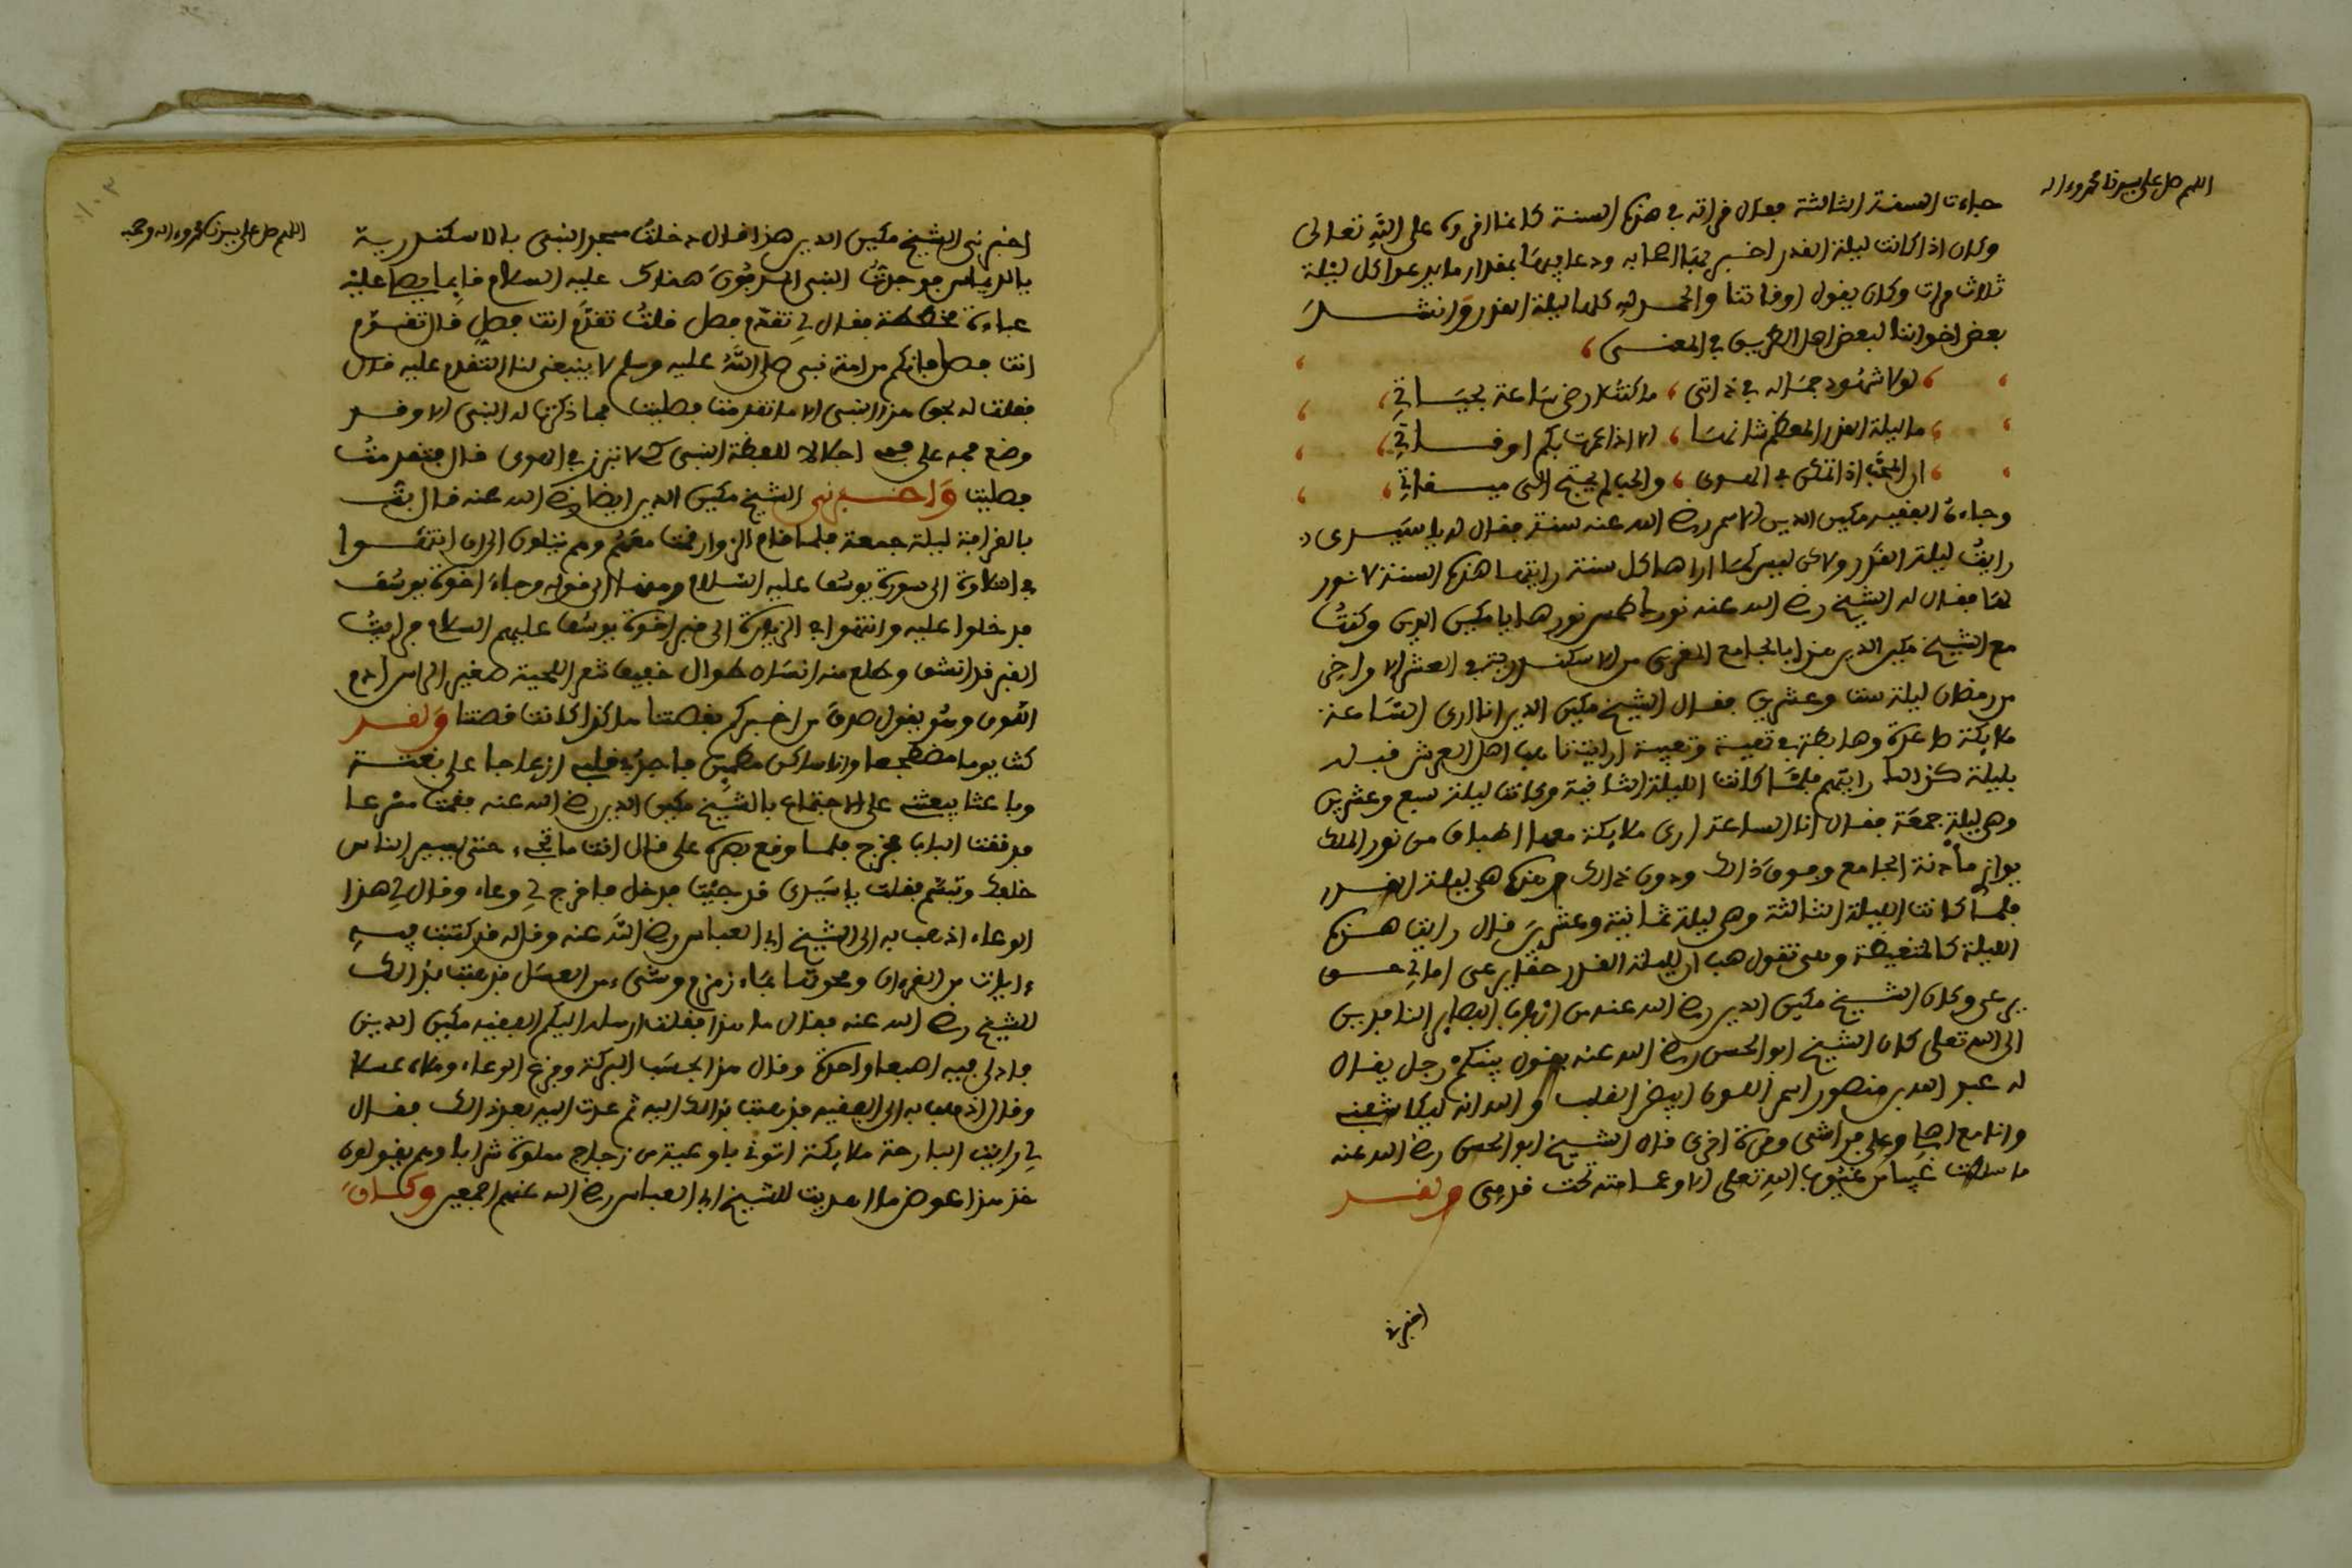 اللهم صل على سيدنا محمد وءاله
جاءت السنة الثالثة فقال قراته في هذه السنة كانما اقروه على الله تعالى
وكان اذا كانت ليلة القدر اخبر بها اصحابه ودعا فيها بمقدار ما يدعوا كل ليلة
ثلاث مرات وكان يقول اوقاتنا والحمد لله كلها ليلة القدر وانشد
بعض اخواننا لبعض اهل الطريق في المعنى
لولا شهود جماله في ذاتي ، ما كنت ارضى ساعة بحياتي
ما ليلة القدر المعظم شانها ، الا اذا عمرت بكم اوقاتي
ان المحب اذا تمكن في الهوى ، والحب لم يحتج الى ميقات
وجاءه الفقيه مكين الدين الاسمر رضي الله عنه سنة فقال له يا سيدي
رايت ليلة القدر ولاكن ليس كما اراها كل سنة رايتها هذه السنة لا نور
لها فقال له الشيخ رضي الله عنه نورك طمس نورها يا مكين الدين وكنت
مع الشيخ مكين الدين هذا بالجامع الغربي من الاسكندرية في العشر الاواخر
من رمضان ليلة ست وعشرين فقال الشيخ مكين الدين انا ارى الساعة
ملايكة صاعدة وهابطة في تهيية وتعبية ارايت تاهب اهل العرس قبله
بليلة كذالك رايتهم فلما كانت الليلة الثانية وكانت ليلة سبع وعشرين
وهي ليلة جمعة فقال انا الساعة ارى ملايكة معها اطباق من نور الملك
يوازي ماذنة الجامع وفوق ذالك ودون ذالك وهذه هي ليلة القدر
فلما كانت الليلة الثالثة وهي ليلة ثمانية وعشرين قال رايت هذه
الليلة كالمتغيظة وهي تقول هب ان لليلة القدر حقا يرعى اما لي حق
يرعى وكان الشيخ مكين الدين رضي الله عنه من ارباب البصاير النافذين
الى الله تعلى كان الشيخ ابو الحسن رضي الله عنه يقول بينكم رجل يقال
له عبد الله بن منصور اسمر اللون ابيض القلب والله انه ليكاشفني
وانا مع اهلي وعلى فراشي ومرة اخرى قال الشيخ ابو الحسن رضي الله عنه
ما سلكت غيبا من غيوب الله تعلى الا وعمامته تحت قدمي ولقد
اخبرني
اللهم صل على سيدنا محمد وءاله وصحبه
اخبرني الشيخ مكين الدين هذا قال دخلت مسجد النبي بالاسكندرية
بالديماس فوجدت النبي المدفون هناك عليه السلام قايما يصلي عليه
عباءة مخططة فقال لي تقدم فصل قلت تقدم انت فصل قال تقدم
انت فصل فانكم من امة نبي صلى الله عليه وسلم لا ينبغي لنا التقدم عليه قال
فقلت له بحق هذا النبي الا ما تقدمت فصليت فما ذكرت له النبي الا وقد
وضع فمه على فمي اجلالا للفظة النبي كي لا تبرز في الهوى قال فتقدمت
فصليت وَاخبرني الشيخ مكين الدين ايضا رضي الله عنه قال بت
بالقرافة ليلة جمعة فلما قام الزوار قمت معهم وهم يتلون الى ان انتهوا
في التلاوة الى سورة يوسف عليه السلام ومنها الى قوله وجاء اخوة يوسف
فدخلوا عليه وانتهوا في الزيارة الى قبر اخوة يوسف عليهم السلام فرايت
القبر قد انشق وطلع منه انسان طوال خفيف شعر اللحية صغير الراس ادم
اللون وهو يقول صدق من اخبركم بقصتنا هاكذا كانت قصتنا وَلقد
كنت يوما مضطجعا وانا ساكن مطمين فاجد في قلبي ازعاجا على بغتة
وباعثا يبعثني على الاجتماع بالشيخ مكين الدين رضي الله عنه فقمت مسرعا
فدققت الباب فخرج فلما وقع بصره علي قال انت ما تجيء حتى يسير الناس
خلفك وتبسم فقلت يا سيدي قد جيت فدخل فاخرج لي وعاء وقال لي هذا
الوعاء اذهب به الى الشيخ ابي العباس رضي الله عنه وقل له قد كتبت فيه
ءايات من القرءان ومحوتها بماء زمزم وشيء من العسل فذهبت بذالك
للشيخ رضي الله عنه فقال ما هذا فقلت ارسله اليكم الفقيه مكين الدين
فادلى فيه اصبعا واحدة وقال هذا بحسب البركة وفرغ الوعاء وملاه عسلا
وقال اذهب به الى الفقيه فذهبت بذالك اليه ثم عدت اليه بعد ذالك فقال
لي رايت البارحة ملايكة اتوني باوعية من زجاج مملوة شرابا وهم يقولون
خذ هذا عوض ما اهديت للشيخ ابي العباس رضي الله عنهم اجمعين وَكان